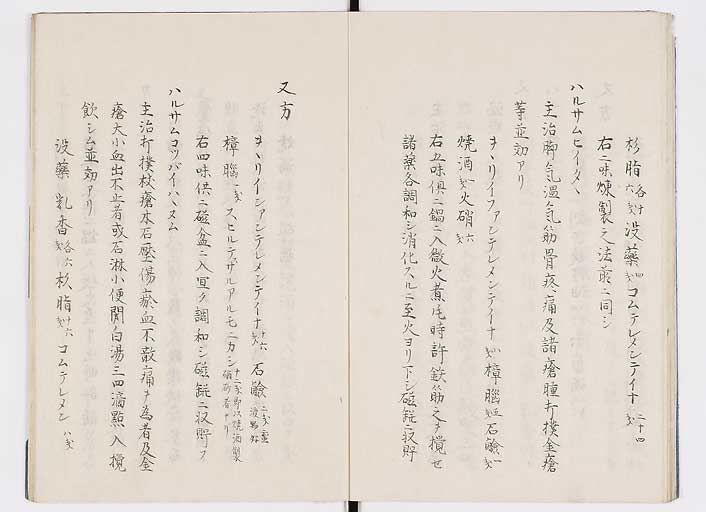 杉脂 各十六匁 没藥 四匁 コムテレメンテイナ 二十四匁
右二味煉製之法前ニ同シ
ハルサムヒイタ
主治脚気温気筋骨疼痛及諸瘡腫打撲金瘡
等並効アリ
ヲヽリイフアンテレメンテイナ 樟腦 石鹸
焼酒 火硝 六匁
右五味倶ニ鍋ニ入微火煮 時許鉄筋之ヲ攪セ
諸藥各調和シ消化スルニ至火ヨリ下シ磁鋺ニ収貯
又方
ヲヽリイシアンテレメンテイナ 十六匁 石鹸
樟腦 一匁 スヒルテザルアルモニカシ
右四味倶ニ磁盆ニ入宜ク調和シ磁鋺ニ収貯フ
ハルサムコツパイハスム
主治打撲杖瘡木石壓傷瘀血不散痛ヲ為者及金
瘡大小血出不止者或石淋小便閉白湯三四滴點入攪
飲シム並効アリ
没藥 乳香 各六匁 杉脂 十六匁 コムテレメン 八匁